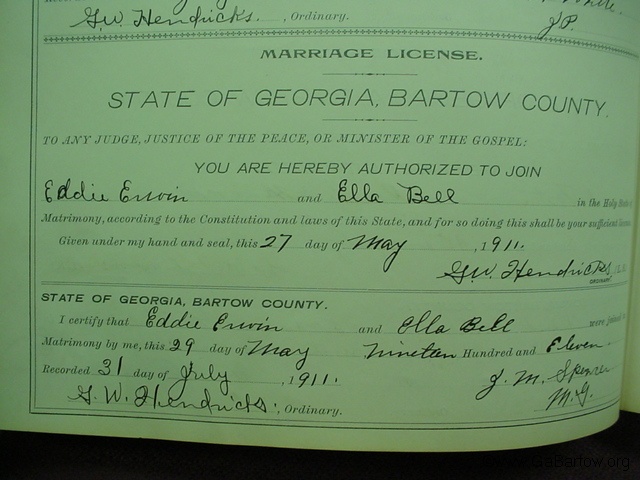 G.W. Hendricks. , Ordinary.
J.P.
MARRIAGE LICENSE.
STATE OF GEORGIA, BARTOW COUNTY.
TO ANY JUDGE, JUSTICE OF THE PEACE, OR MINISTER OF THE GOSPEL:
YOU ARE HEREBY AUTHORIZED TO JOIN
Eddie Erwin and Ella Bell in the Holy State of
Matrimony, according to the Constitution and laws of this State, and for so doing this shall be your sufficient
Given under my hand and seal, this 27 day of May , 1911.
G.W. Hendricks
ORDINARY
STATE OF GEORGIA, BARTOW COUNTY.
I certify that Eddie Erwin and Ella Bell were joined
Matrimony by me, this 29 day of May Nineteen Hundred and Eleven
Recorded 31 day of July , 1911. J. M. Spencer
G. W. Hendricks. , Ordinary. M.G.
GaBartow.org